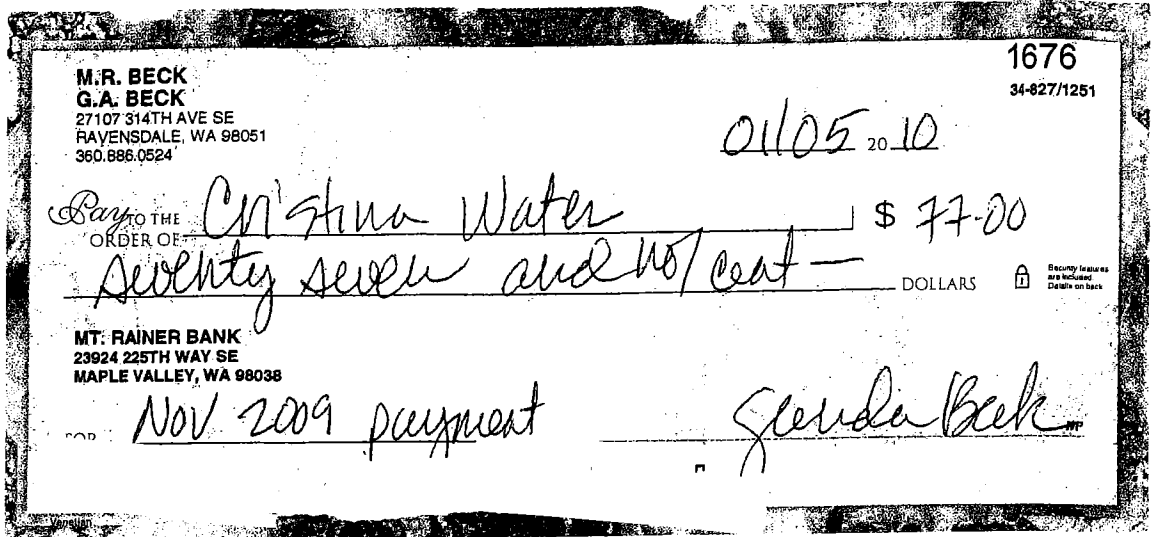 1676
34-827/1251
M.R. BECK
G.A. BECK
27107 314TH AVE SE
RAVENSDALE, WA 98051
360.886.0524
01/05 20 10
Pay TO THE ORDER OF Cristina Water $ 77.00
seventy seven and no/ cent — DOLLARS
Security features
are included
Details on back
MT. RAINER BANK
23924 225TH WAY SE
MAPLE VALLEY, WA 98038
FOR Nov 2009 payment Glenda Beck
MP
Venetian